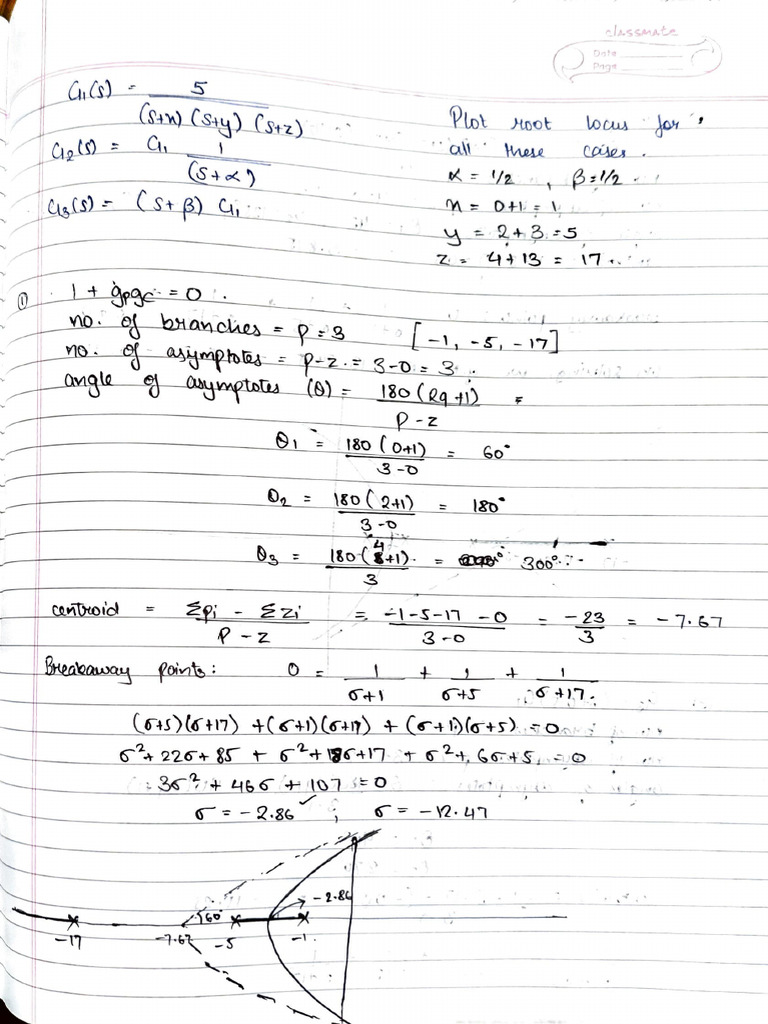 classmate
Date
Page
G1(s) = 5 / (s+x) (s+y) (s+z)
G2(s) = G1 1 / (s+α)
G3(s) = (s+β) G1
Plot root locus for
all these cases.
α = 1/2 , β = 1/2
x = 0+1 = 1
y = 2+3 = 5
z = 4+13 = 17
① 1 + gpgc = 0.
no. of branches = P = 3 [-1, -5, -17]
no. of asymptotes = P-z = 3-0 = 3
angle of asymptotes (θ) = 180(2q+1) / P-z =
θ1 = 180(0+1) / 3-0 = 60°
θ2 = 180(2+1) / 3-0 = 180°
θ3 = 180(4+1) / 3 = 300°
centroid = Σpi - Σzi / P-z = -1-5-17-0 / 3-0 = -23/3 = -7.67
Breakaway points: 0 = 1/σ+1 + 1/σ+5 + 1/σ+17
(σ+5)(σ+17) + (σ+1)(σ+17) + (σ+1)(σ+5) = 0
σ²+22σ+85 + σ²+18σ+17 + σ²+6σ+5 = 0
3σ² + 46σ + 107 = 0
σ = -2.86 ✓ ; σ = -12.47
-2.86
60°
-17 -7.67 -5 -1